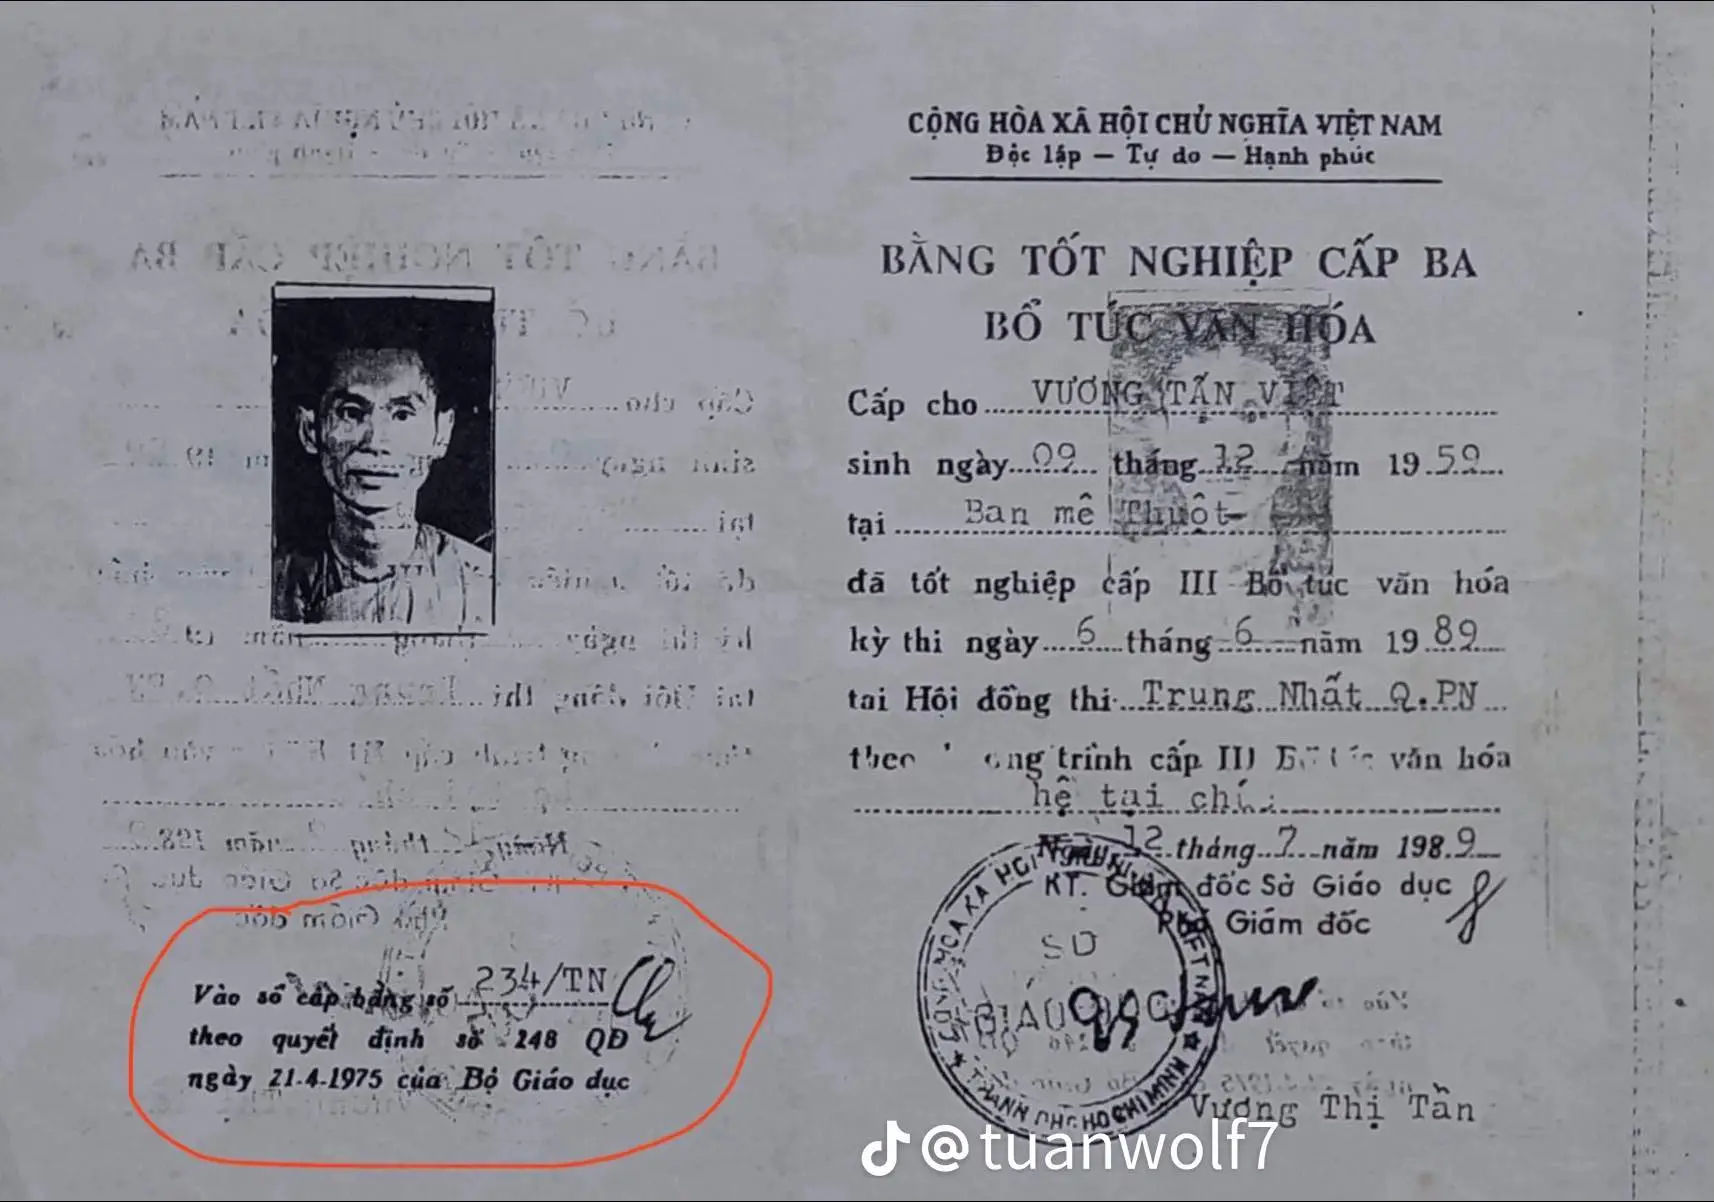 Vào sổ cấp bằng số 234/TN
theo quyết định số 248 QĐ
ngày 21-4-1975 của Bộ Giáo dục
CỘNG HÒA XÃ HỘI CHỦ NGHĨA VIỆT NAM
Độc lập — Tự do — Hạnh phúc
BẰNG TỐT NGHIỆP CẤP BA
BỔ TÚC VĂN HÓA
Cấp cho VƯƠNG TẤN VIỆT
sinh ngày 09 tháng 12 năm 1959
tại Ban mê Thuột
đã tốt nghiệp cấp III Bổ túc văn hóa
kỳ thi ngày 6 tháng 6 năm 1989
tại Hội đồng thi Trung Nhất Q.PN
trình cấp III văn hóa
hệ tại
Ngày 12 tháng 7 năm 1989
KT. Giám đốc Sở Giáo dục
Phó Giám đốc
CỘNG HÒA XÃ HỘI CHỦ NGHĨA VIỆT NAM
SỞ
GIÁO DỤC
THÀNH PHỐ HỒ CHÍ MINH
Vương Thị Tân
@tuanwolf7